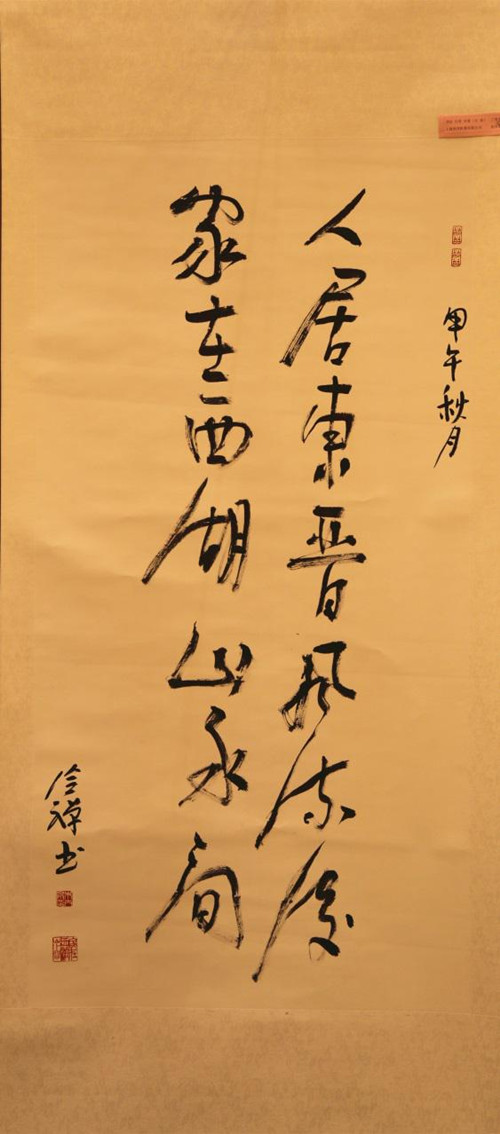 甲午秋月
人居東晉風流後
家在西湖山水間
禅书